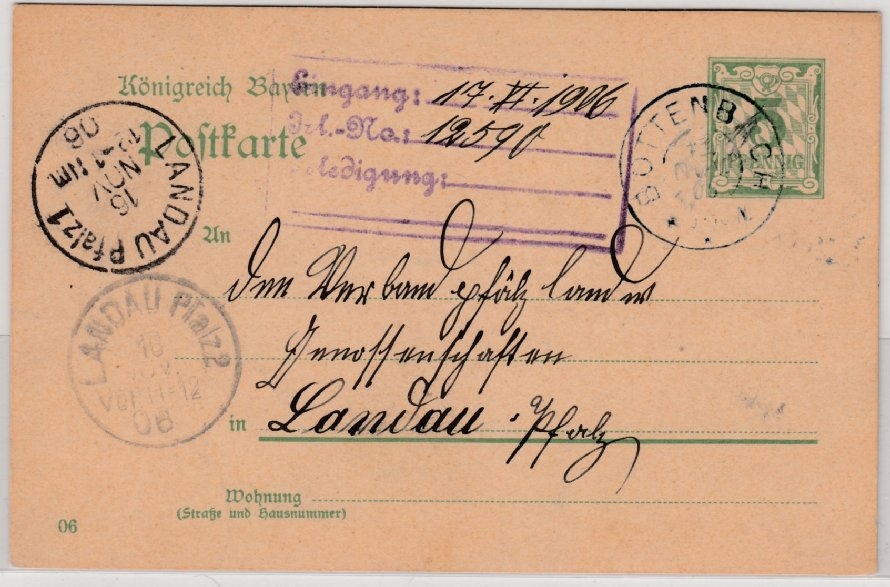 Königreich Bayern
Postkarte
Eingang: 17. XI. 1906
Jrl.-No.: 12590
Erledigung:
BOTTENBACH
5
PFENNIG
LANDAU Pfalz 1
16
NOV
12-1 Nm
06
An
den Verband pfälz landw
Genossenschaften
in Landau . Pfalz
LANDAU Pfalz 2
16
NOV
Vor 11-12
06
Wohnung
(Straße und Hausnummer)
06